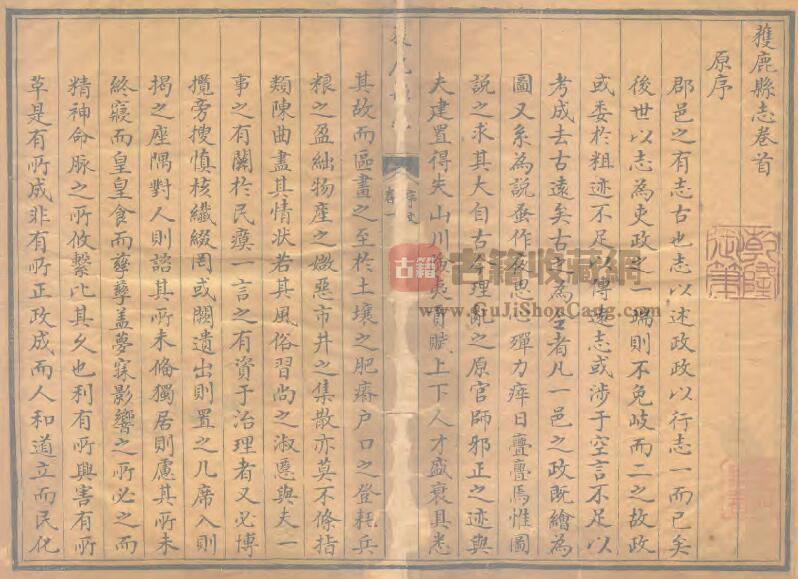 獲鹿縣志卷首
原序
郡邑之有志古也志以述政政以行志一而已矣
後世以志為吏政之一端則不免歧而二之故政
或委於粗迹不足以傳遠志或涉于空言不足以
考成去古遠矣古之為者凡一邑之政既繪為
圖又系為說蚤作夜思彈力瘁日亹亹焉惟圖
說之求其大自古今理亂之原官師邪正之迹與
夫建置得失山川險夷貢賦上下人才盛衰具悉
其故而區畫之至於土壤之肥瘠户口之登耗兵
粮之盈絀物產之媺惡市井之集散亦莫不條指
類陳曲盡其情状若其風俗習尚之淑慝與夫一
事之有關於民瘼一言之有資于治理者又必博
攬旁搜慎核纖綴罔或闕遺出則置之几席入則
揭之座隅對人則詢其所未備獨居則慮其所未
終寢而皇皇食而孳孳盖夢寐影響之所必之而
精神命脉之所攸繫比其久也利有所興害有所
革是有所成非有所正政成而人和道立而民化
乾隆
古籍
古籍收藏網
www.GuJiShouCang.com